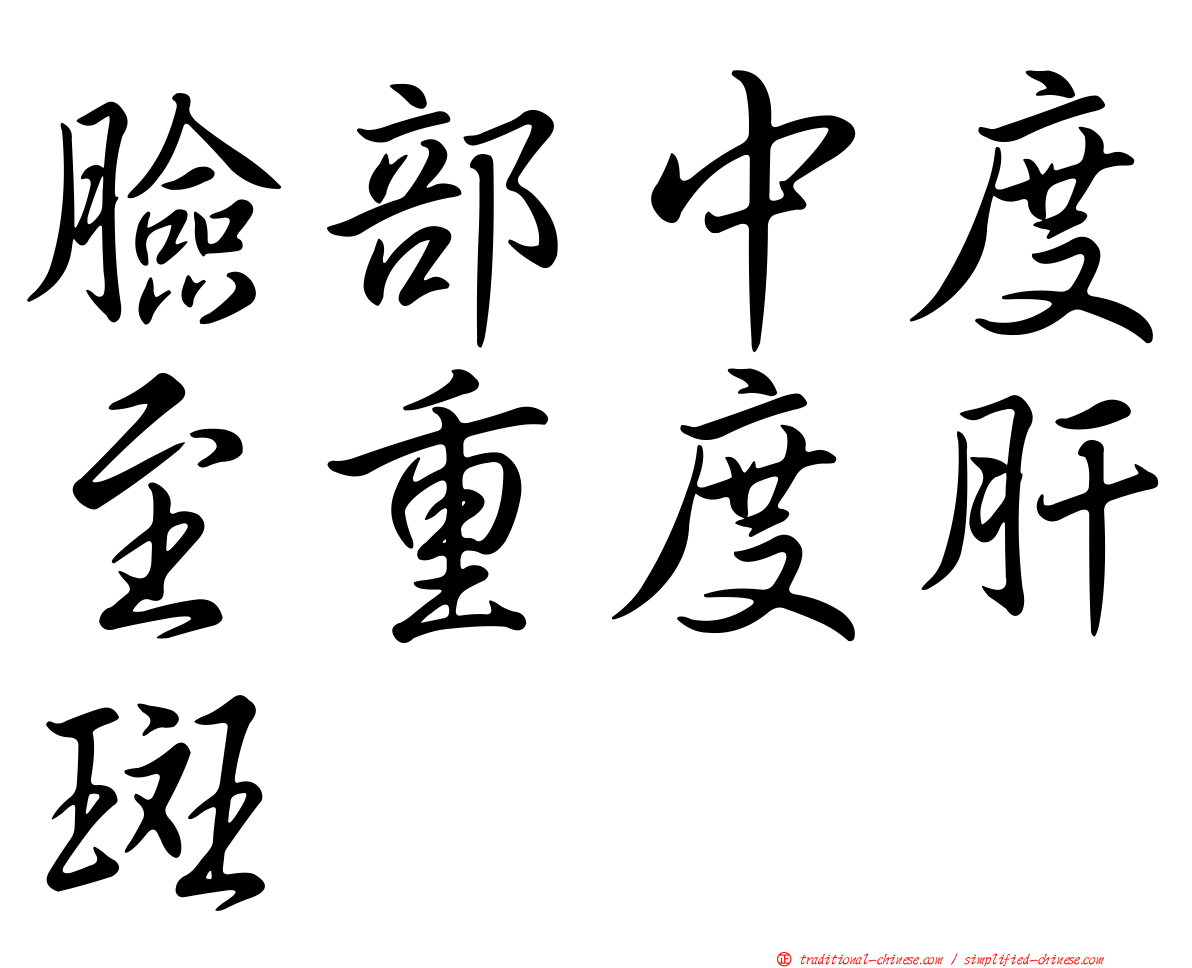 臉部中度
至重度肝
斑
㊣ traditional-chinese.com / simplified-chinese.com